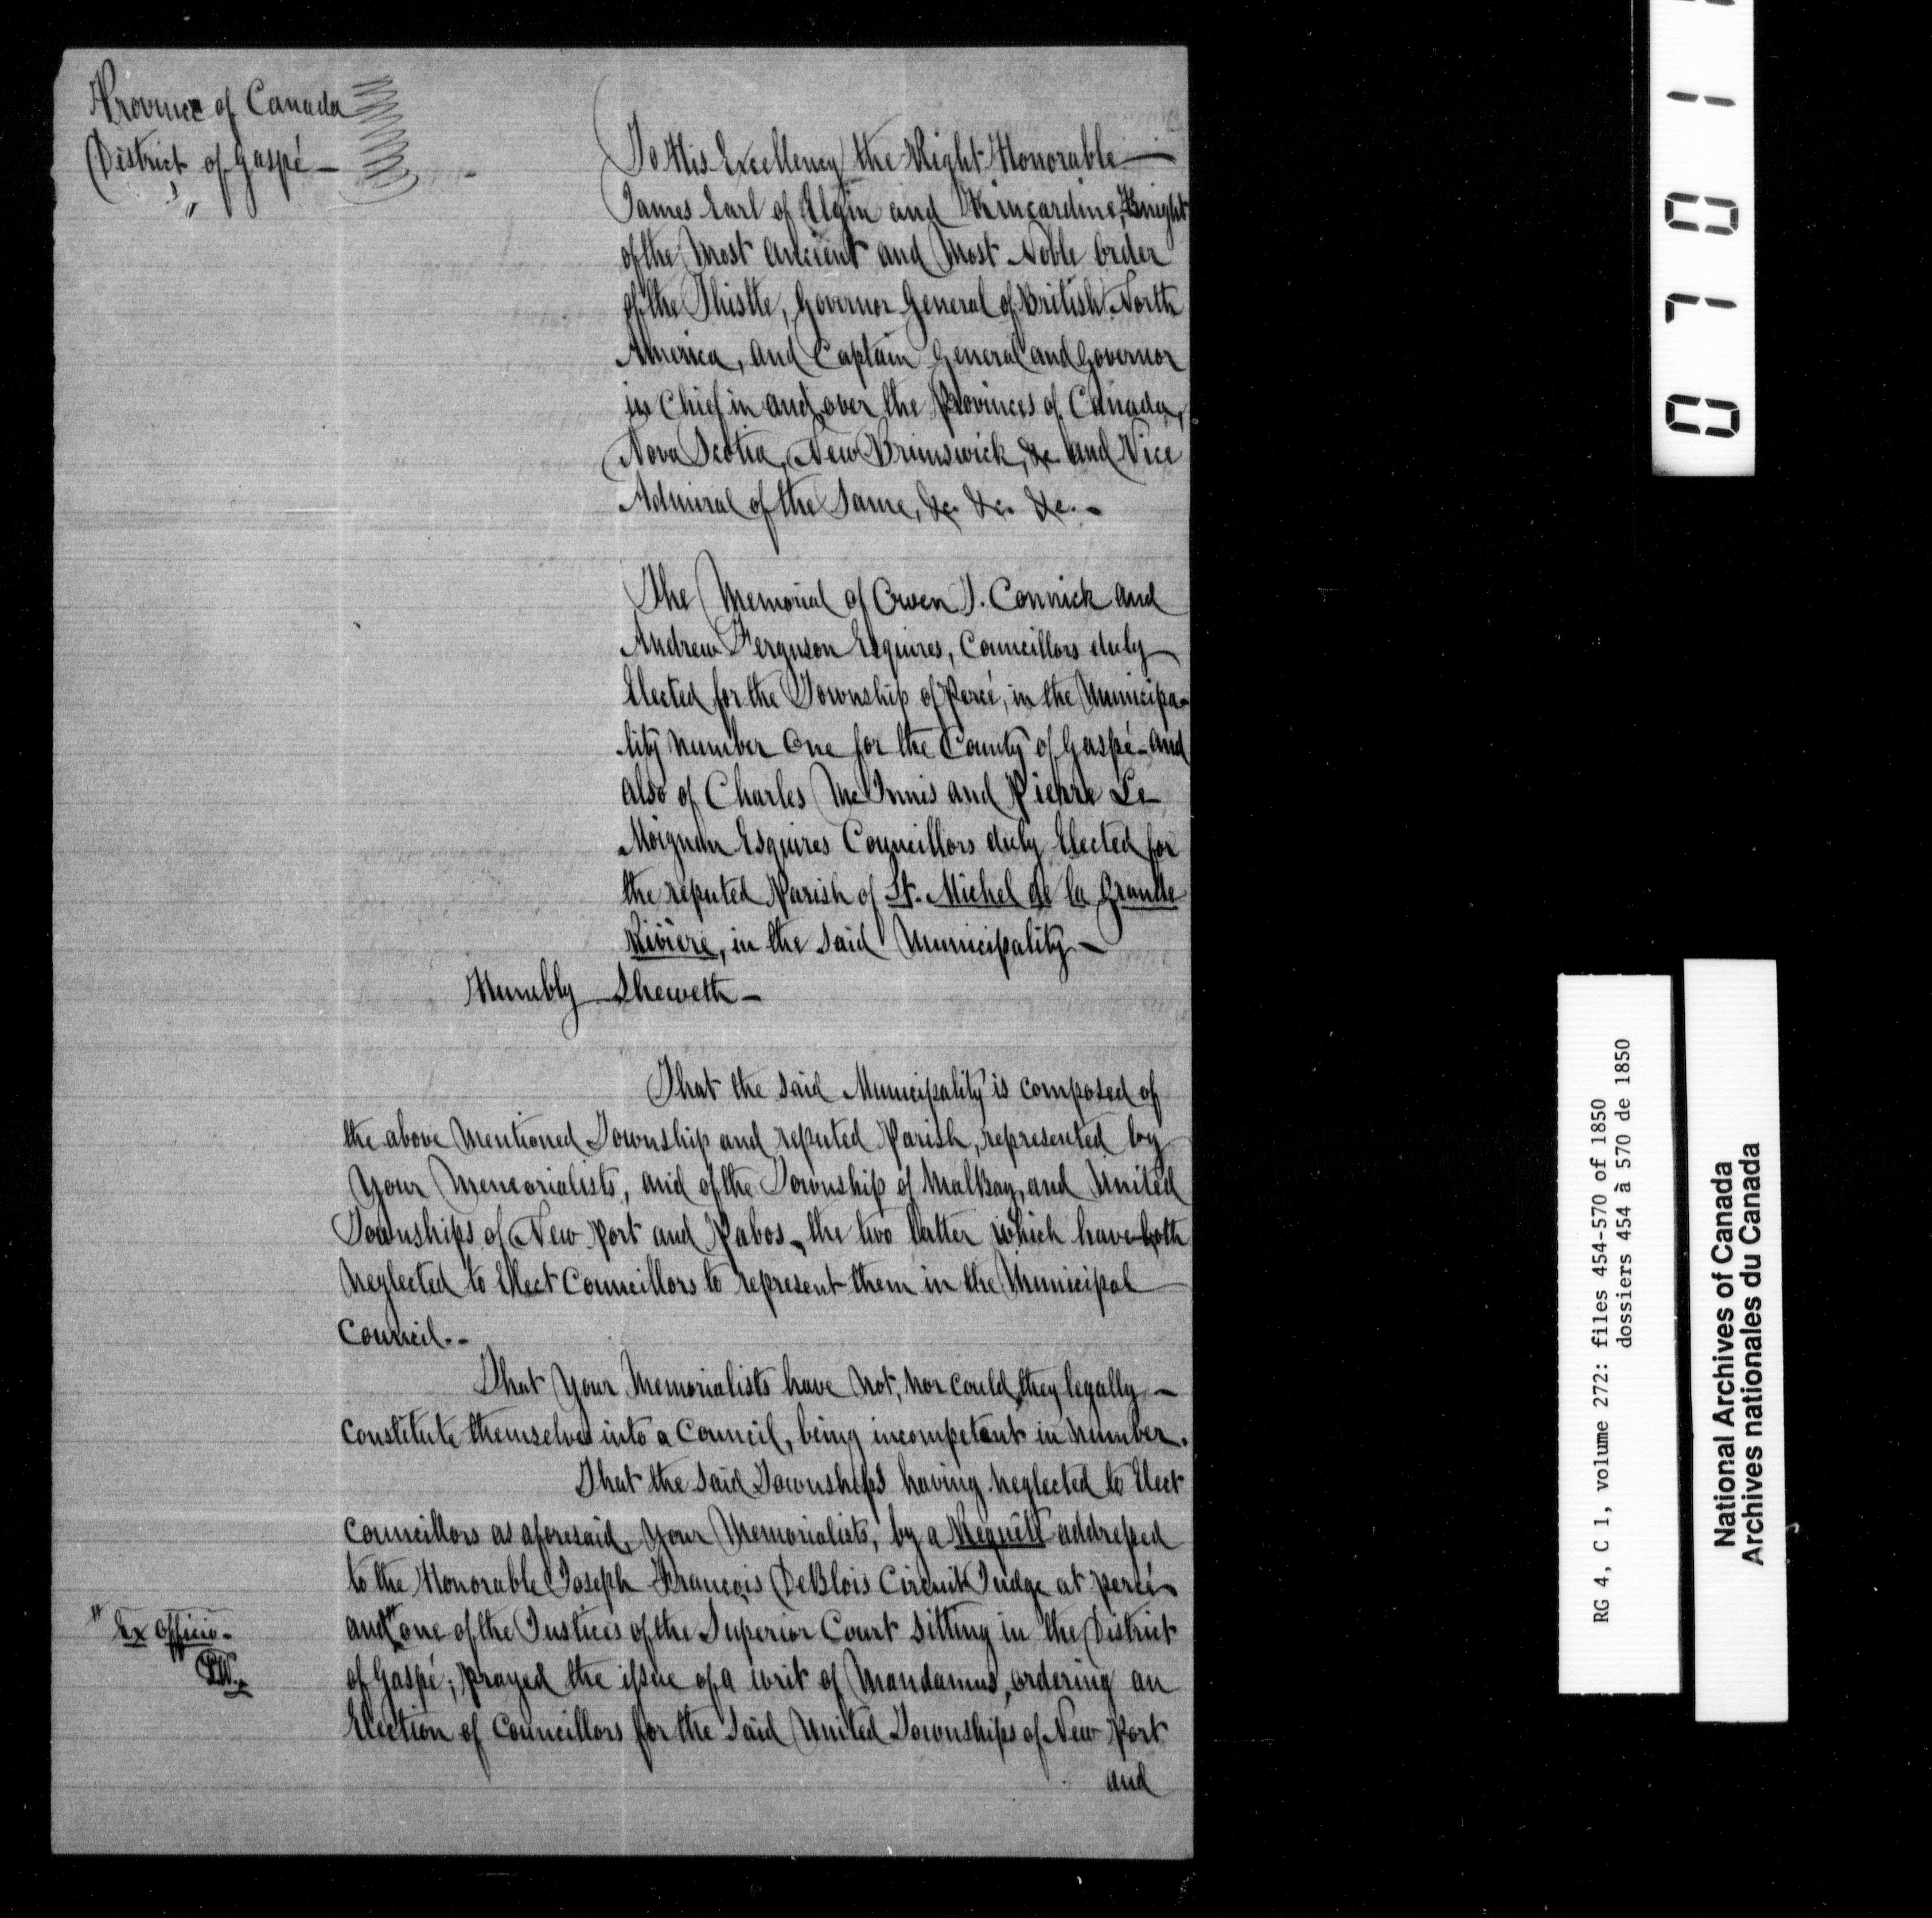 Province of Canada
District of Gaspé —
To His Excellency the Right Honorable —
James Earl of Elgin and Kincardine, Knight
of the Most Ancient and Most Noble Order
of the Thistle, Governor General of British North
America, and Captain General and Governor
in Chief in and over the Provinces of Canada,
Nova Scotia, New Brunswick, &c. and Vice
Admiral of the Same, &c. &c. &c. -
The Memorial of Owen J. Connick and
Andrew Ferguson Esquires, Councillors duly
Elected for the Township of Percé, in the Municipa-
lity number One for the County of Gaspé - and
also of Charles McInnis and Pierre Le-
Moignan Esquires Councillors duly Elected for
the reputed Parish of St. Michel de la Grande
Rivière, in the said Municipality -
Humbly Sheweth -
That the said Municipality is composed of
the above mentioned Township and reputed Parish, represented by
Your Memorialists, and of the Township of MalBay, and United
Townships of New Port and Pabos, the two latter which have both
neglected to Elect Councillors to represent them in the Municipal
Council. -
That Your Memorialists have not, nor could they legally -
constitute themselves into a Council, being incompetent in number.
That the said Townships having neglected to Elect
Councillors as aforesaid, Your Memorialists, by a Requête addressed
to the Honorable Joseph François DeBlois Circuit Judge at Percé
" Ex Officio -
and " one of the Justices of the Superior Court sitting in the District
of Gaspé; prayed the issue of a writ of Mandamus, ordering an
Election of Councillors for the said United Townships of New Port
and
0701
RG 4, C 1, volume 272: files 454-570 of 1850
dossiers 454 à 570 de 1850
National Archives of Canada
Archives nationales du Canada